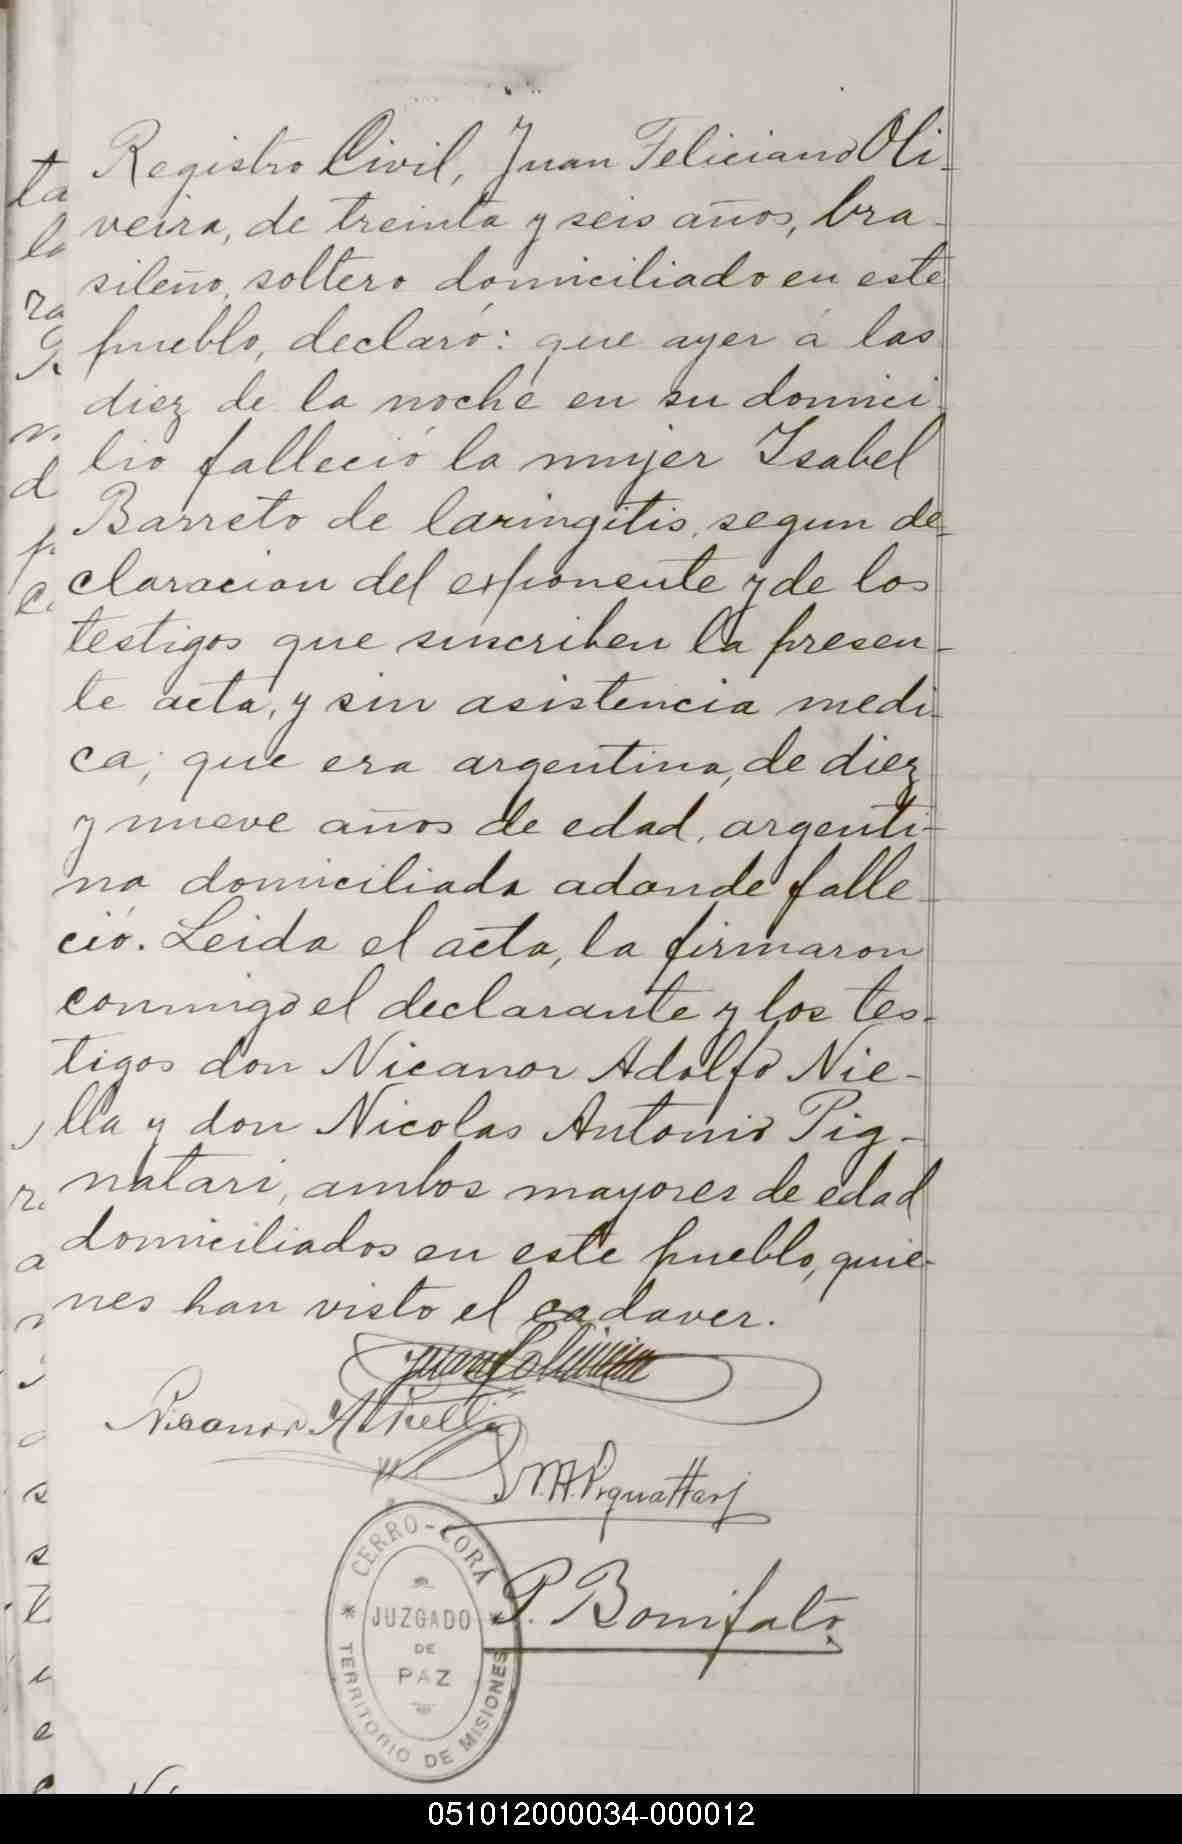 Registro Civil, Juan Feliciano Oli-
veira, de treinta y seis años, bra-
sileño, soltero domiciliado en este
pueblo, declaró: que ayer á las
diez de la noche en su domici
lio falleció la mujer Isabel
Barreto de laringitis, segun de-
claracion del exponente y de los
testigos que suscriben la presen-
te acta, y sin asistencia medi-
ca; que era argentina, de diez
y nueve años de edad, argenti-
na domiciliada adonde falle-
ció. Leida el acta, la firmaron
conmigo el declarante y los tes-
tigos don Nicanor Adolfo Nie-
lla y don Nicolas Antonio Pig-
natari, ambos mayores de edad
domiciliados en este pueblo, quie-
nes han visto el cadaver.
Nicanor A. Niella
N. A. Pignattari
P. Bonifato
CERRO-CORÁ
JUZGADO
DE
PAZ
TERRITORIO DE MISIONES
051012000034-000012